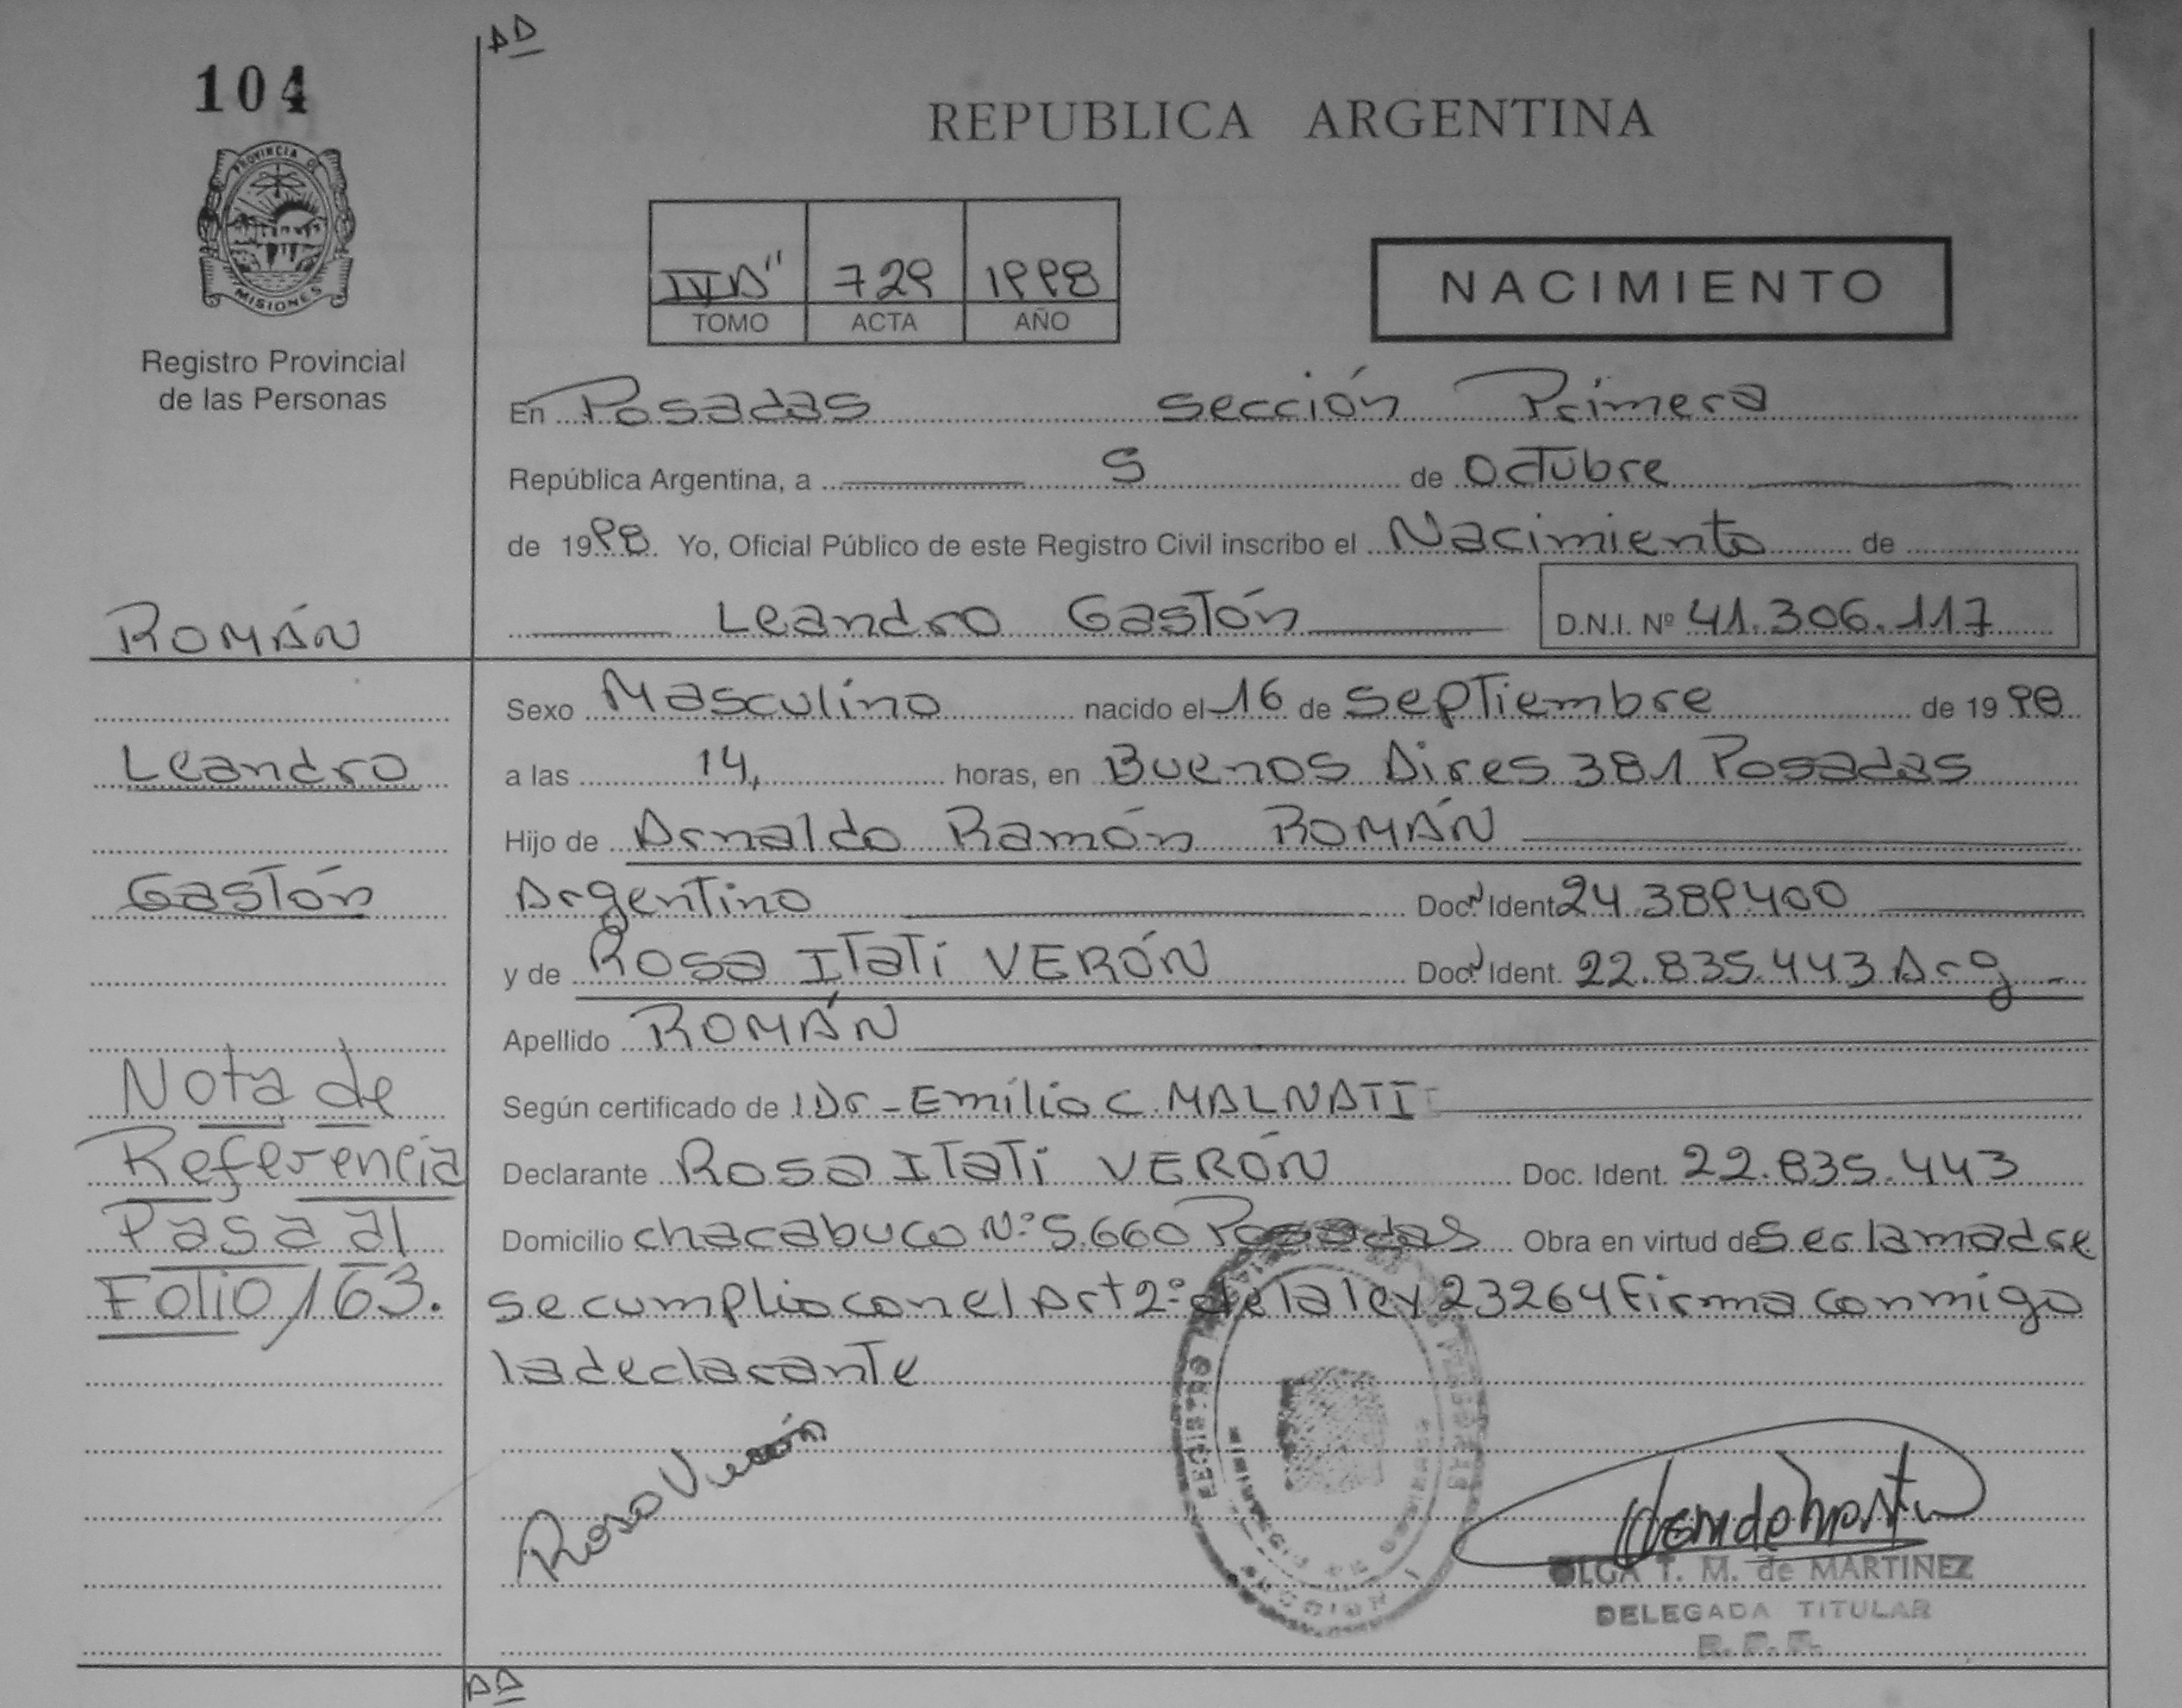 AD
104
PROVINCIA DE
MISIONES
Registro Provincial
de las Personas
REPUBLICA ARGENTINA
729 1998
TOMO ACTA AÑO
NACIMIENTO
En Posadas sección Primera
República Argentina, a 5 de octubre
de 1998. Yo, Oficial Público de este Registro Civil inscribo el Nacimiento de
Leandro Gastón D.N.I. Nº 41.306.117
ROMÁN
Leandro
Gastón
Nota de
Referencia
Pasa al
Folio 163.
Sexo Masculino nacido el 16 de septiembre de 1998
a las 14, horas, en Buenos Aires 381 Posadas
Hijo de Arnaldo Ramón ROMÁN
Argentino Doc. Ident. 24.389.400
y de Rosa Itatí VERÓN Doc. Ident. 22.835.443 Arg
Apellido ROMÁN
Según certificado de Dr-Emilio C. MALNATI
Declarante Rosa Itatí VERÓN Doc. Ident. 22.835.443
Domicilio chacabuco Nº 5.660 Posadas Obra en virtud de ser la madre
se cumplio con el Art 2º de la ley 23264 Firma conmigo
la declarante
Rosa Verón
OLGA T. M. de MARTINEZ
DELEGADA TITULAR
AD